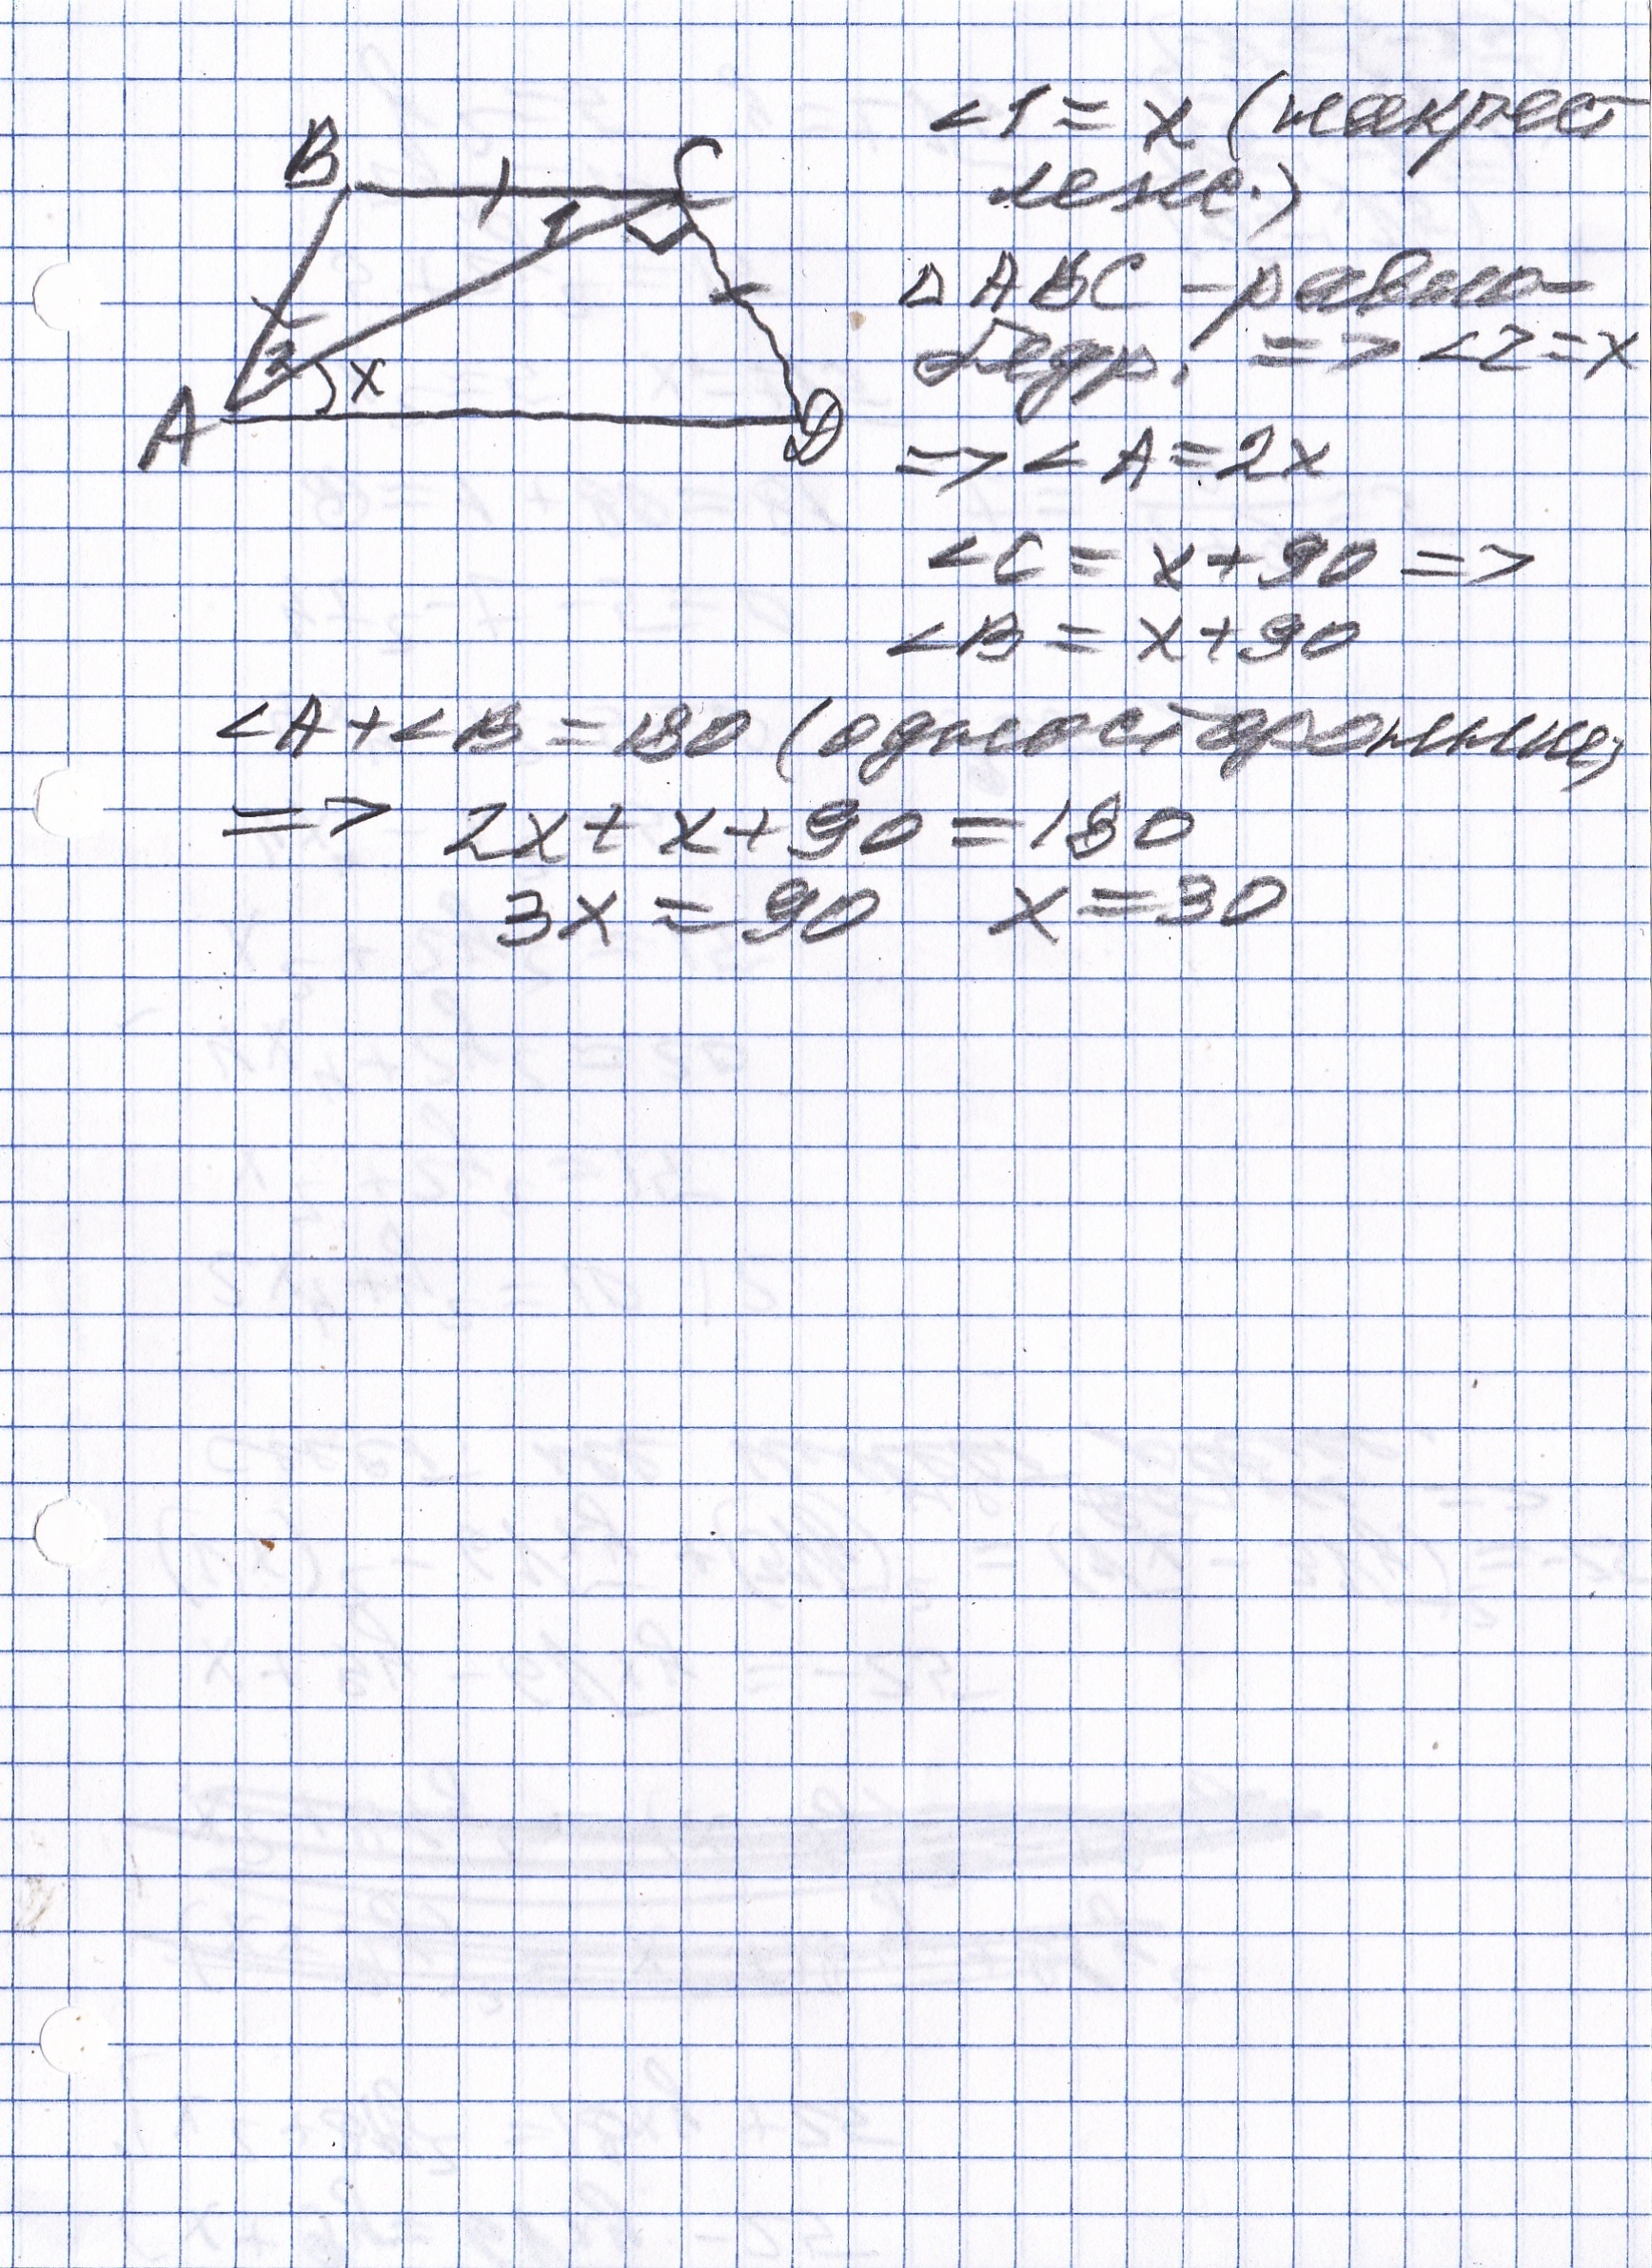 B
C
1
2
x
A
D
<1 = x (накрест
леж.)
△ABC - равно-
бедр. => <2 = x
=> <A = 2x
<C = x + 90 =>
<B = x + 90
<A + <B = 180 (односторонние)
=> 2x + x + 90 = 180
3x = 90 x = 30